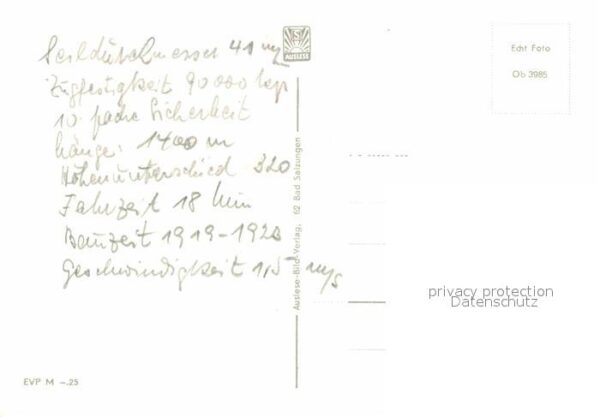 Seildurchmesser 41 mm
Zugfestigkeit 90 000 kp
10 fache Sicherheit
Länge: 1400 m
Höhenunterschied 320
Fahrzeit 18 Min
Bauzeit 1919-1923
Geschwindigkeit 1,5 m/s
AUSLESE
Auslese-Bild-Verlag, 62 Bad Salzungen
Echt Foto
Ob 3985
privacy protection
Datenschutz
EVP M -.25